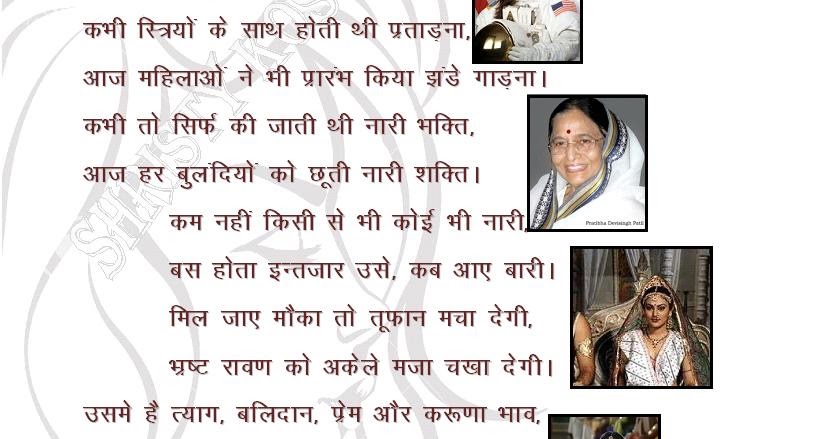 कभी स्त्रियों के साथ होती थी प्रताड़ना,
आज महिलाओं ने भी प्रारंभ किया झंडे गाड़ना।
कभी तो सिर्फ की जाती थी नारी भक्ति,
आज हर बुलंदियों को छूती नारी शक्ति।
Pratibha Devisingh Patil
कम नहीं किसी से भी कोई भी नारी,
बस होता इन्तजार उसे, कब आए बारी।
मिल जाए मौका तो तूफान मचा देगी,
भ्रष्ट रावण को अकेले मजा चखा देगी।
उसमे है त्याग, बलिदान, प्रेम और करूणा भाव,